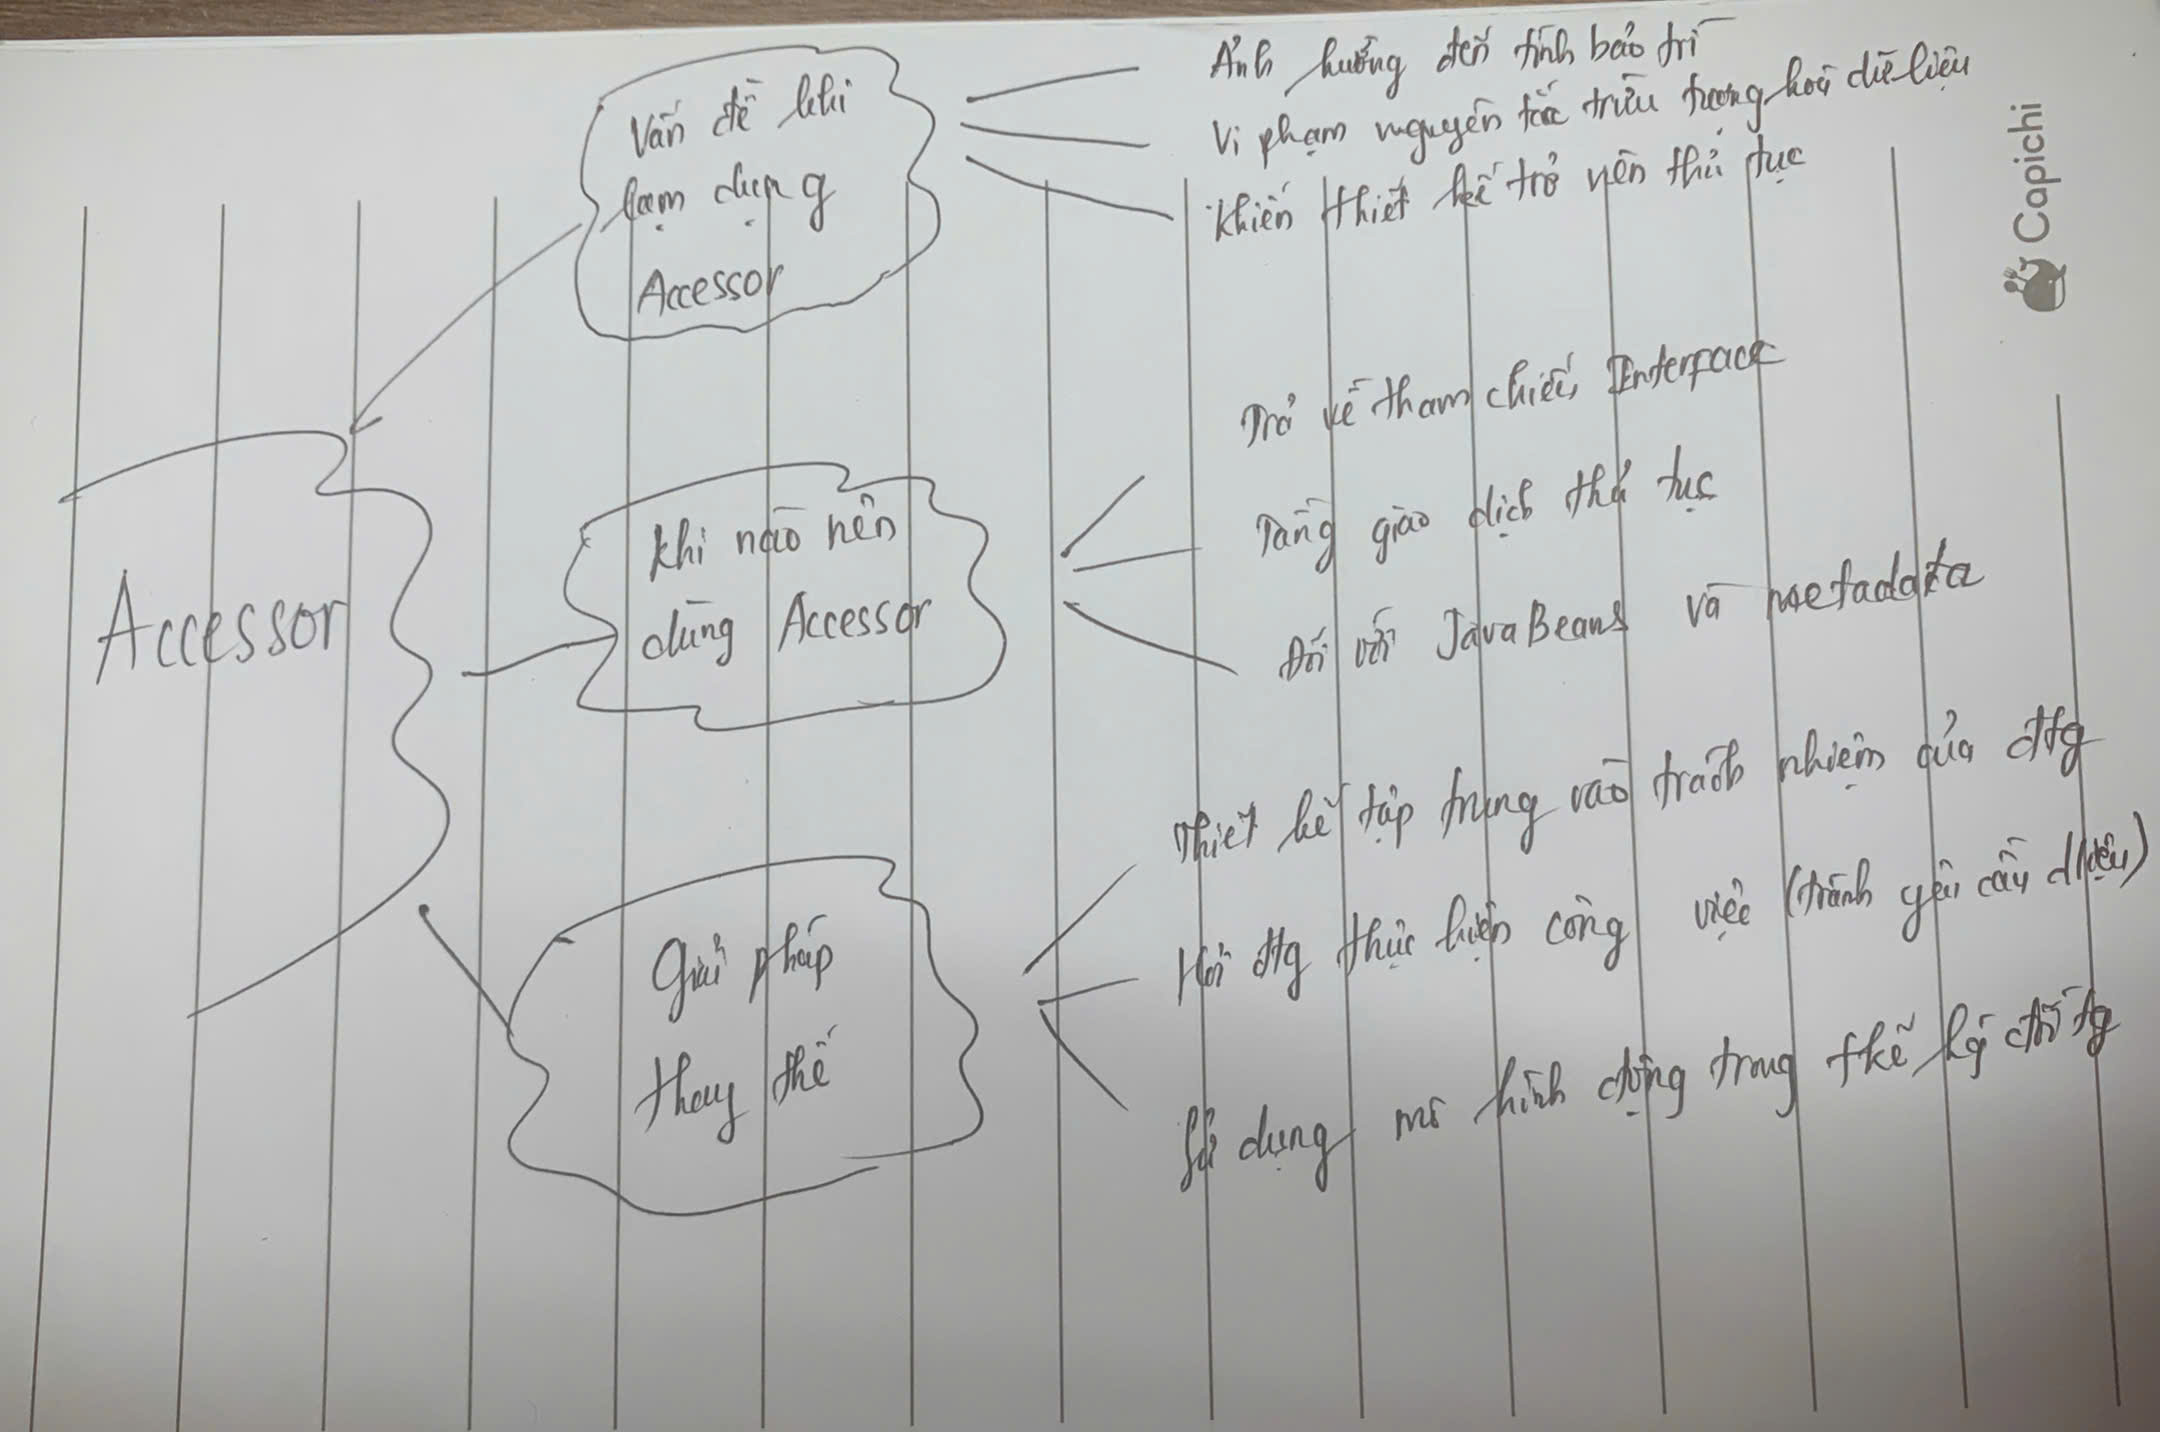 Accessor
Vấn đề khi
lạm dụng
Accessor
Ảnh hưởng đến tính bảo trì
Vi phạm nguyên tắc trừu tượng hoá dữ liệu
Khiến thiết kế trở nên thủ tục
Khi nào nên
dùng Accessor
Trả về tham chiếu Interface
Tầng giao dịch thủ tục
Đối với JavaBeans và metadata
Giải pháp
thay thế
Thiết kế tập trung vào trách nhiệm của đtg
Hỏi đtg thực hiện công việc (tránh yêu cầu dliệu)
Sử dụng mô hình động trong thế kỷ đố tg
Capichi